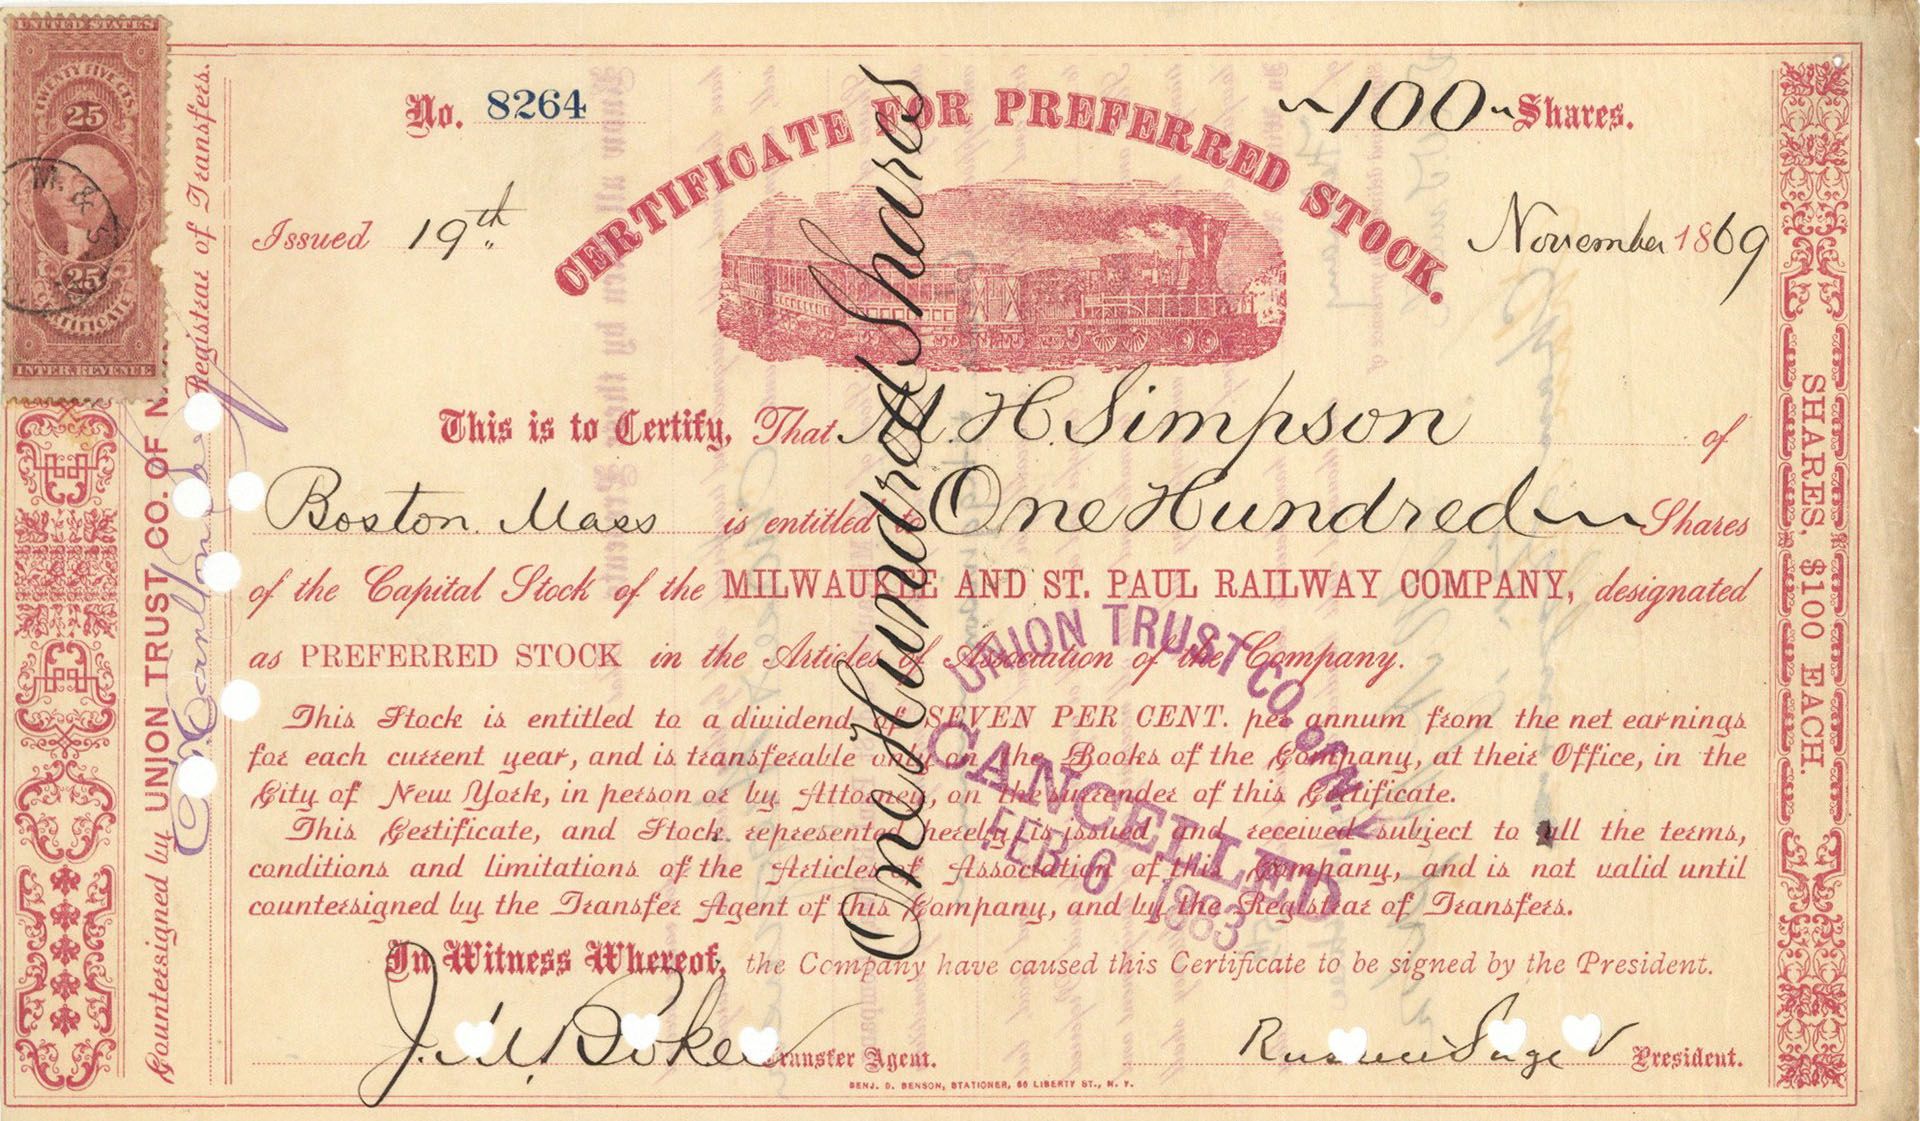 UNITED STATES
TWENTY FIVE CTS.
25
M. & S
25
CERTIFICATE
INTER. REVENUE
Countersigned by UNION TRUST CO. OF N.
Registrar of Transfers.
No. 8264
CERTIFICATE FOR PREFERRED STOCK.
100 Shares.
Issued 19th November 1869
This is to Certify, That M. H. Simpson of
Boston. Mass is entitled to One Hundred Shares
of the Capital Stock of the MILWAUKEE AND ST. PAUL RAILWAY COMPANY, designated
as PREFERRED STOCK in the Articles of Association of the Company.
This Stock is entitled to a dividend of SEVEN PER CENT. per annum from the net earnings
for each current year, and is transferable only on the Books of the Company, at their Office, in the
City of New York, in person or by Attorney, on the surrender of this Certificate.
This Certificate, and Stock represented hereby is issued and received subject to all the terms,
conditions and limitations of the Articles of Association of this Company, and is not valid until
countersigned by the Transfer Agent of this Company, and by the Registrar of Transfers.
In Witness Whereof, the Company have caused this Certificate to be signed by the President.
Transfer Agent.
Russell Sage President.
BENJ. D. BENSON, STATIONER, 66 LIBERTY ST., N. Y.
One Hundred Shares
UNION TRUST CO. OF N.Y.
CANCELLED
FEB 6 1883
SHARES, $100 EACH.